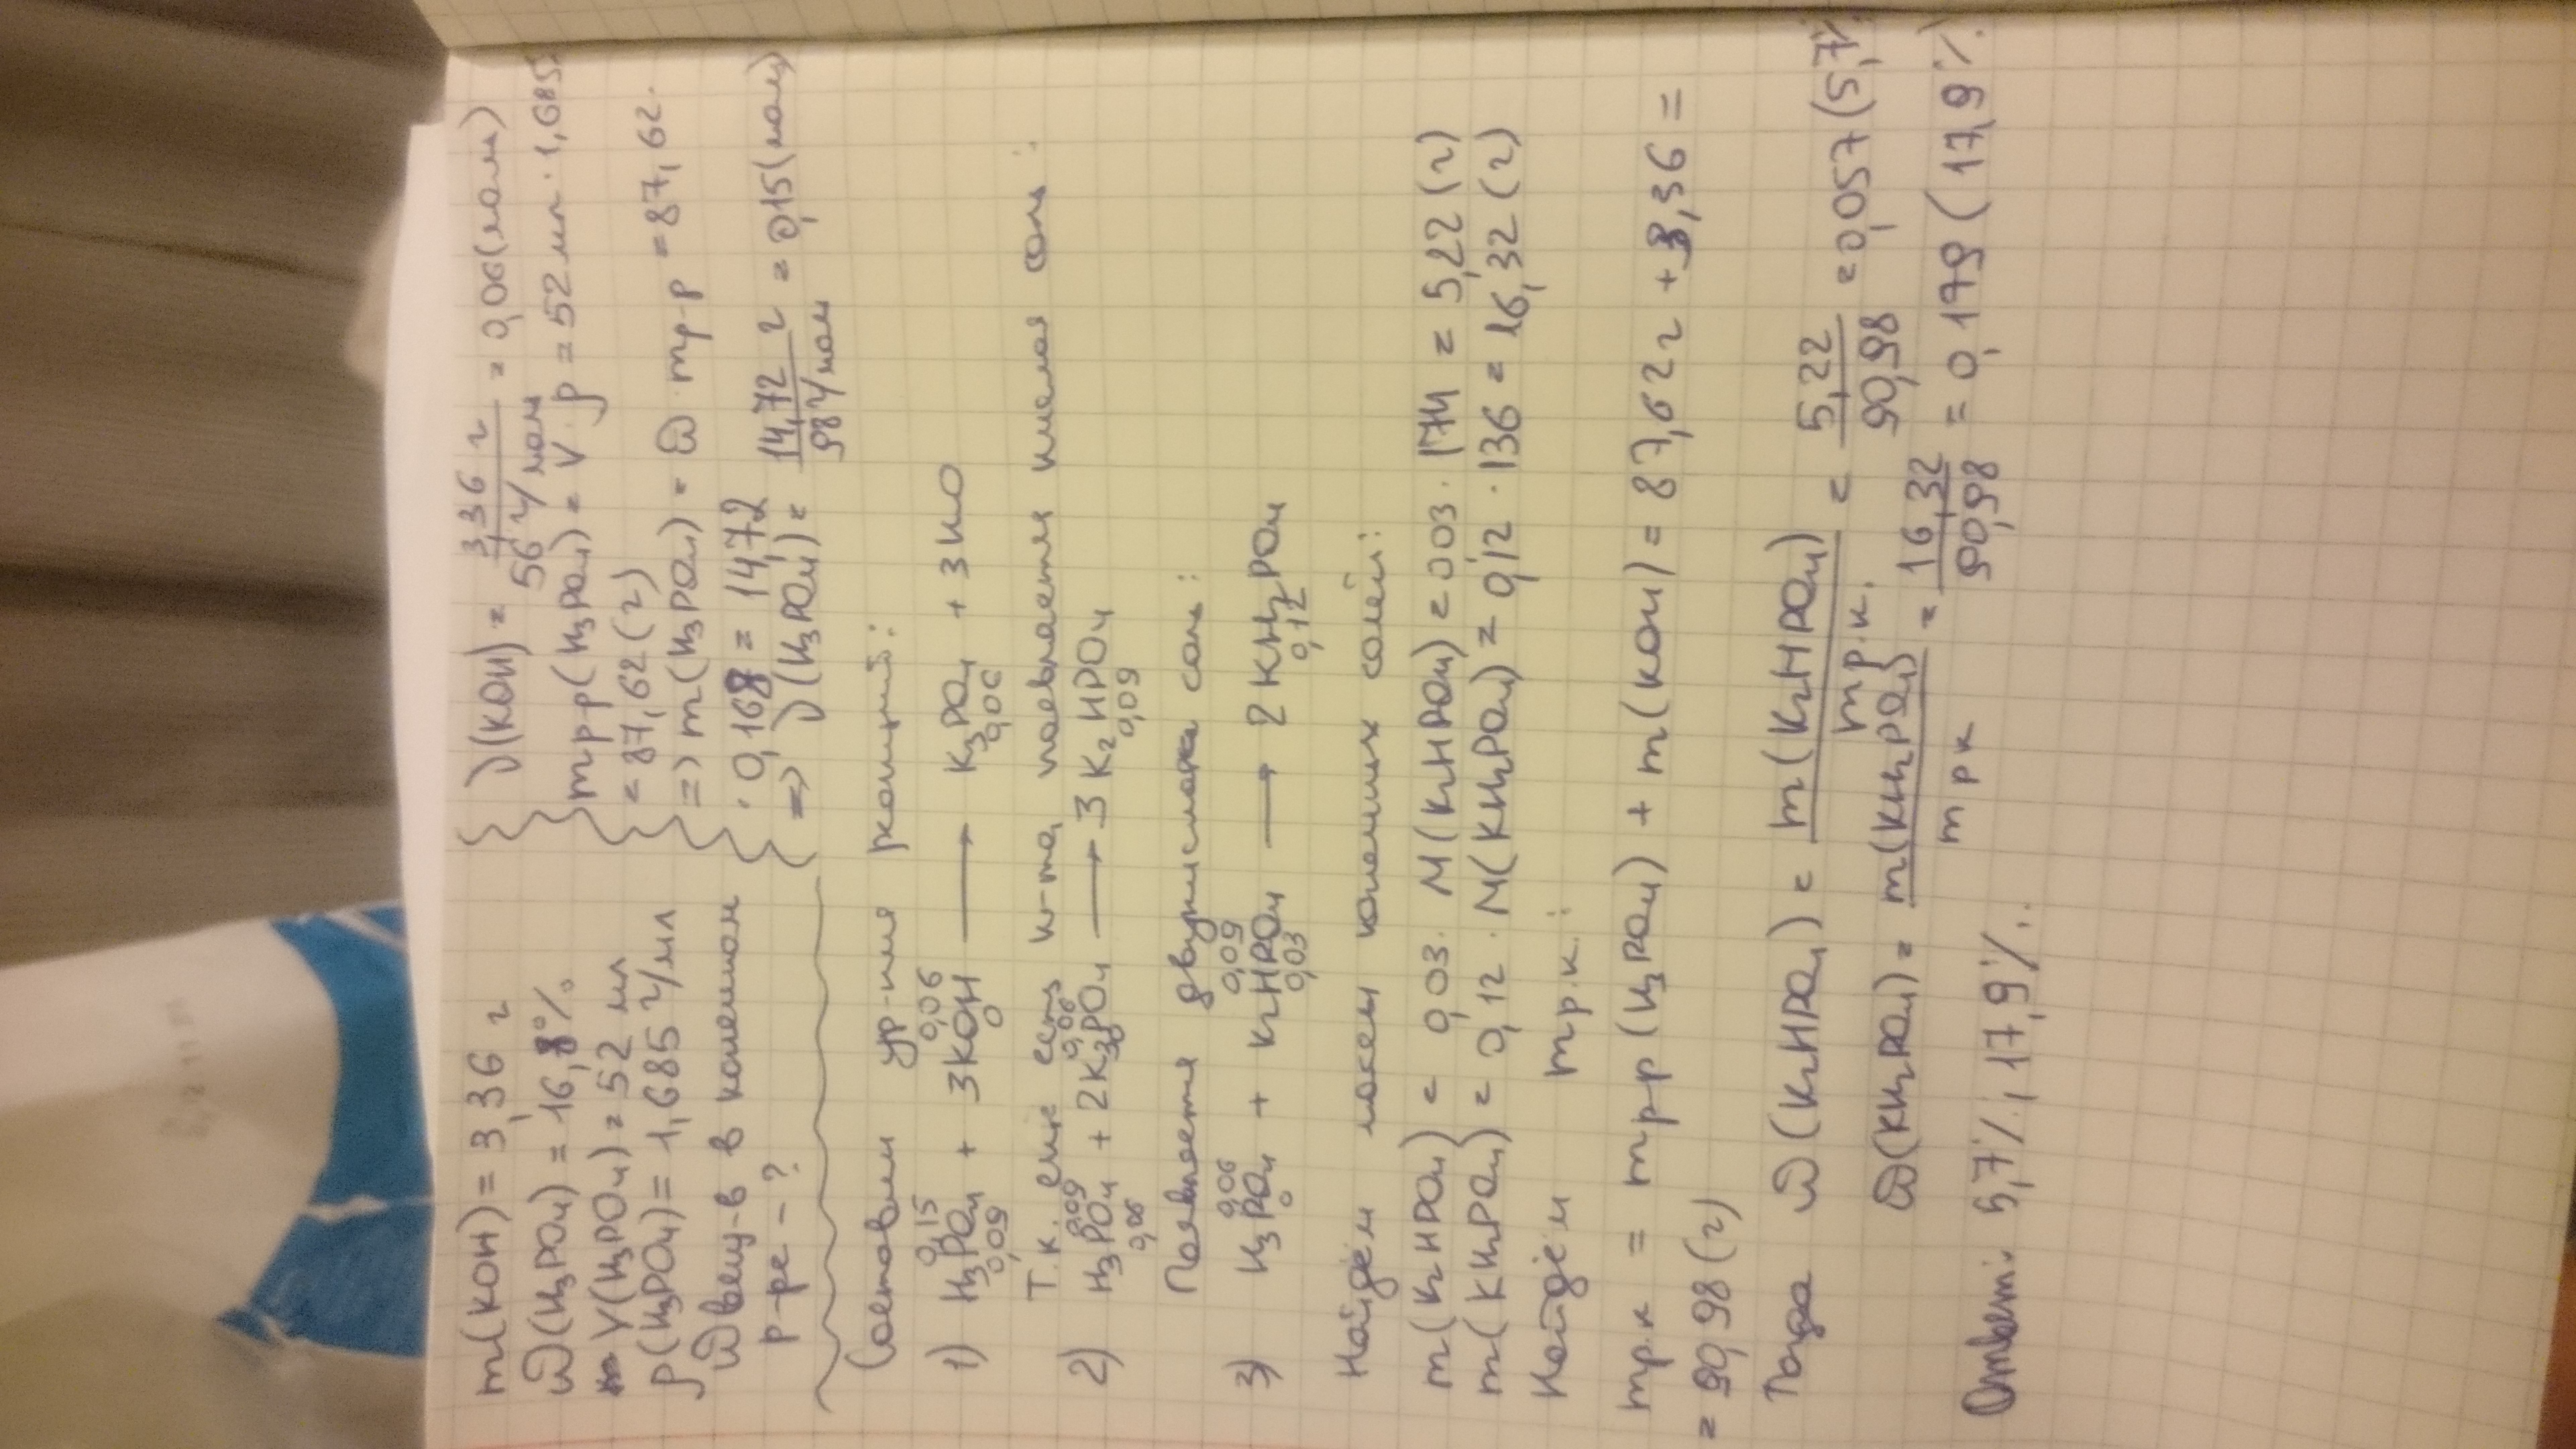 m(KOH) = 3,36 г
ω(H₃PO₄) = 16,8%
V(H₃PO₄) = 52 мл
ρ(H₃PO₄) = 1,685 г/мл
ω вещ-в в конечном
р-ре - ?
ν(KOH) = 3,36 г / 56 г/моль = 0,06 (моль)
mр-р(H₃PO₄) = V · ρ = 52 мл · 1,685 =
= 87,62 (г)
=> m(H₃PO₄) = ω · mр-р = 87,62 ·
· 0,168 = 14,72
=> ν(H₃PO₄) = 14,72 г / 98 г/моль = 0,15 (моль)
Составим ур-ния реакций:
0,15 0,06
1) H₃PO₄ + 3KOH ⟶ K₃PO₄ + 3H₂O
0,09 0 0,06
Т.к. еще есть к-та, появляется кислая соль:
0,09 0,06
2) H₃PO₄ + 2K₃PO₄ ⟶ 3K₂HPO₄
0,06 0 0,09
Появляется двукислая соль:
0,06 0,09
3) H₃PO₄ + K₂HPO₄ ⟶ 2KH₂PO₄
0 0,03 0,12
Найдём массы конечных солей:
m(K₂HPO₄) = 0,03 · M(K₂HPO₄) = 0,03 · 174 = 5,22 (г)
m(KH₂PO₄) = 0,12 · M(KH₂PO₄) = 0,12 · 136 = 16,32 (г)
Найдём mр.к.:
mр.к = mр-р(H₃PO₄) + m(KOH) = 87,62 г + 3,36 =
= 90,98 (г)
Тогда ω(K₂HPO₄) = m(K₂HPO₄) / mр.к. = 5,22 / 90,98 = 0,057 (5,7%)
ω(KH₂PO₄) = m(KH₂PO₄) / mр.к = 16,32 / 90,98 = 0,179 (17,9%)
Ответ: 5,7%, 17,9%.